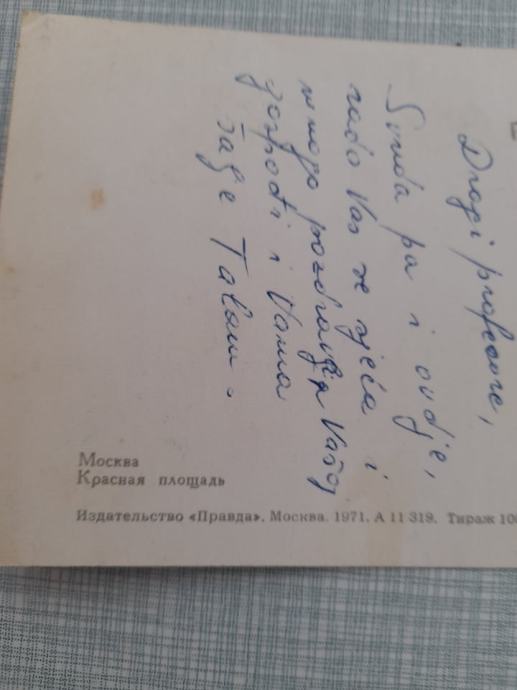 Dragi profesore,
Svuda pa i ovdje,
rado Vas se sjeća i
mnogo pozdravlja Vašoj
gospođi i Vama
šalje
Москва
Красная площадь
Издательство «Правда». Москва. 1971. А 11 319. Тираж